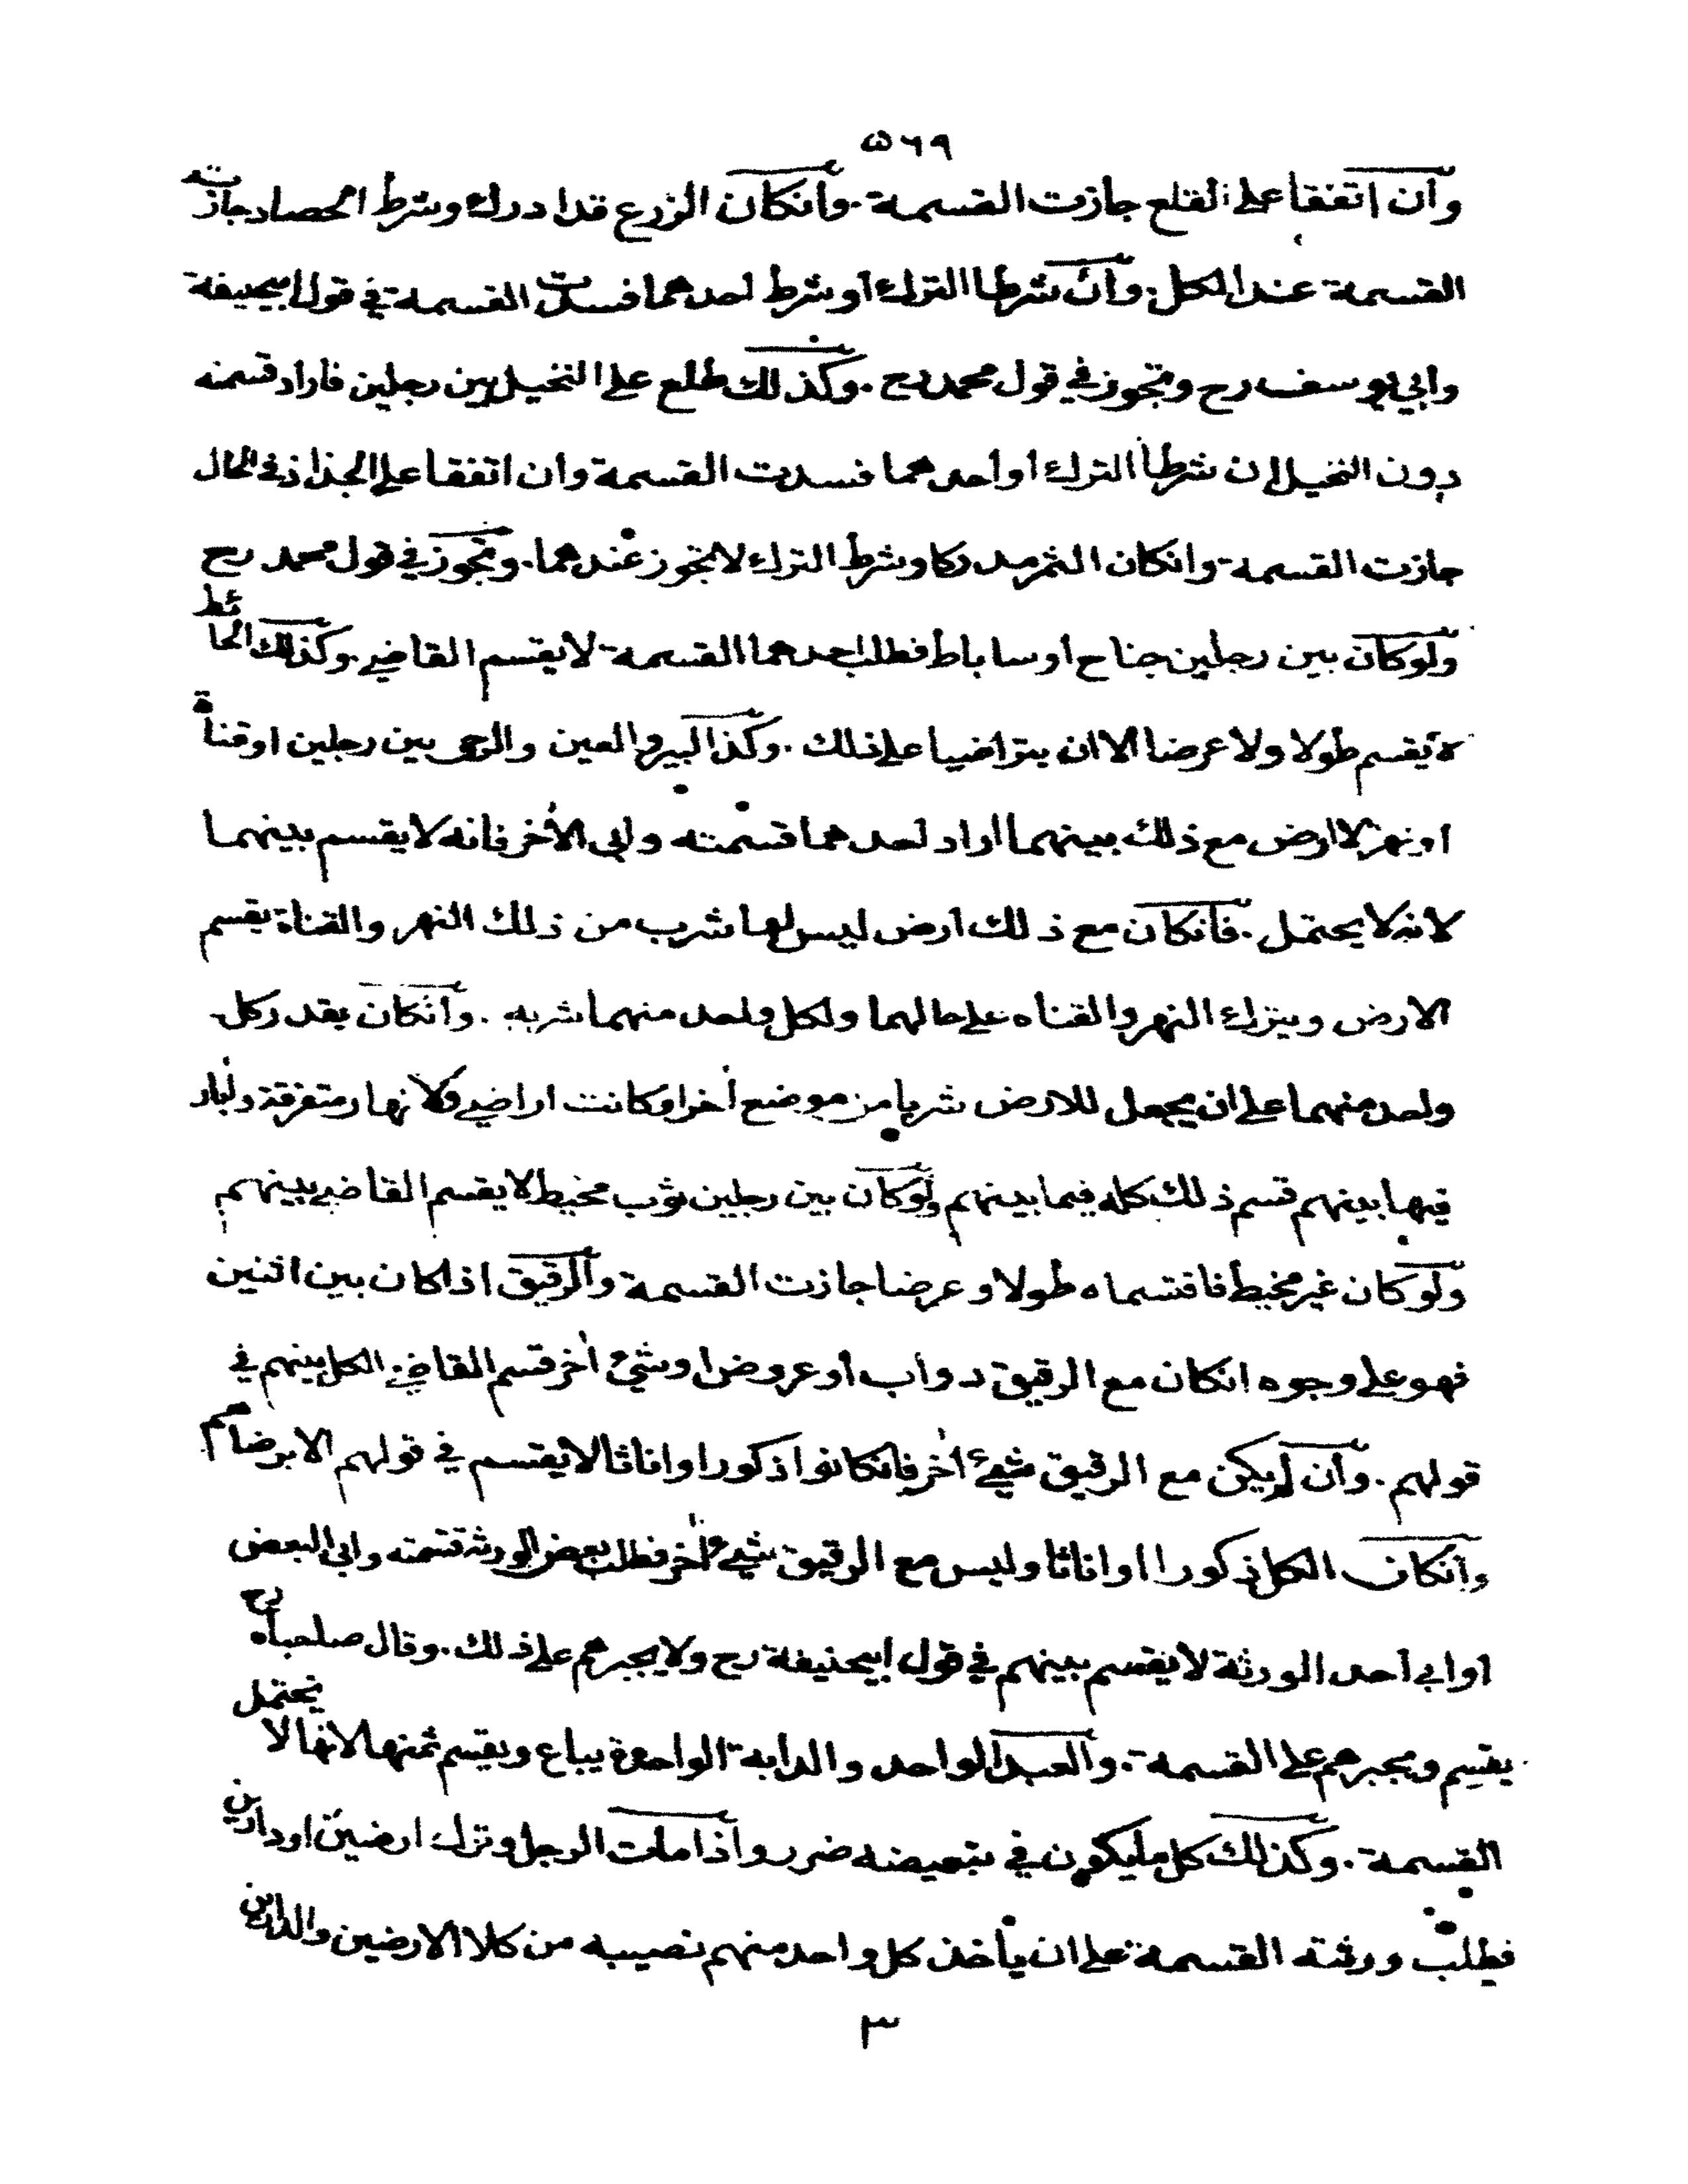 ٥٦٩
وان اتفقا على القلع جازت القسمة . وانكان الزرع قد ادرك وشرط الحصاد جازت
القسمة عند الكل . وان شرطا الترك او شرط احدهما فسدت القسمة في قول ابيحنيفة
وابي يوسف رح وتجوز في قول محمد رح . وكذلك طلع على النخيل بين رجلين فاراد قسمته
دون النخيل ان شرطا الترك او احدهما فسدت القسمة وان اتفقا على الجذاذ في الحال
جازت القسمة وانكان الثمر مدركا وشرط الترك لا تجوز عندهما . وتجوز في قول محمد رح
ولوكان بين رجلين جناح او ساباط فطلب احدهما القسمة لا يقسم القاضي . وكذلك الحائط
لا يقسم طولا ولا عرضا الا ان يتراضيا على ذلك . وكذا البير والعين والرحى بين رجلين او قناة
او نهر لا ارض مع ذلك بينهما اراد احدهما قسمته وابى الأخر فانه لا يقسم بينهما
لانه لا يحتمل . فانكان مع ذلك ارض ليس لها شرب من ذلك النهر والقناة يقسم
الارض ويترك النهر والقناه على حالهما ولكل واحد منهما شربه . وانكان يقدر كل
واحد منهما على ان يجعل للارض شربا من موضع أخر او كانت اراضي وانهار متفرقة وابار
فيها بينهم قسم ذلك كله فيما بينهم ولوكان بين رجلين ثوب مخيط لا يقسم القاضي بينهم
ولوكان غير مخيط فاقتسماه طولا وعرضا جازت القسمة والرقيق اذا كان بين اثنين
فهو على وجوه انكان مع الرقيق دواب او عروض او شيء اخر قسم القاضي الكل بينهم في
قولهم . وان لم يكن مع الرقيق شيء اخر فانكانوا ذكورا واناثا لا يقسم في قولهم الا برضاهم
وانكان الكل ذكورا او اناثا وليس مع الرقيق شيء أخر فطلب بعض الورثة قسمته وابى البعض
او ابى احد الورثة لا يقسم بينهم في قول ابيحنيفة رح ولا يجبرهم على ذلك . وقال صاحباه رح
يقسم ويجبرهم على القسمة . والعبد الواحد والدابة الواحدة يباع ويقسم ثمنها لانها لا يحتمل
القسمة . وكذلك كل ما يكون في تبعيضه ضرر واذا مات الرجل وترك ارضين او دارين
فطلب ورثته القسمة على ان يأخذ كل واحد منهم نصيبه من كلا الارضين والدارين
٣